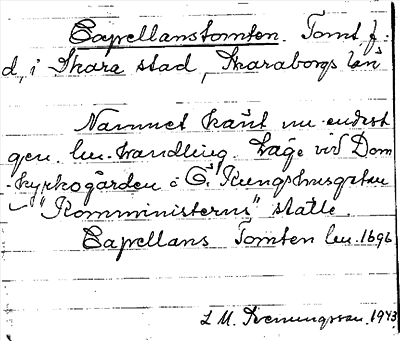 Capellanstomten. Tomt, f.
d, i Skara stad, Skaraborgs län
Namnet känt nu endast
gen. hdl. handling. Läge vid Dom
-kyrkogården i Ö. Kungshusgatan
- "Komministerns" ställe.
Capellans Tomten 1696
L M. Svenungsson. 1943